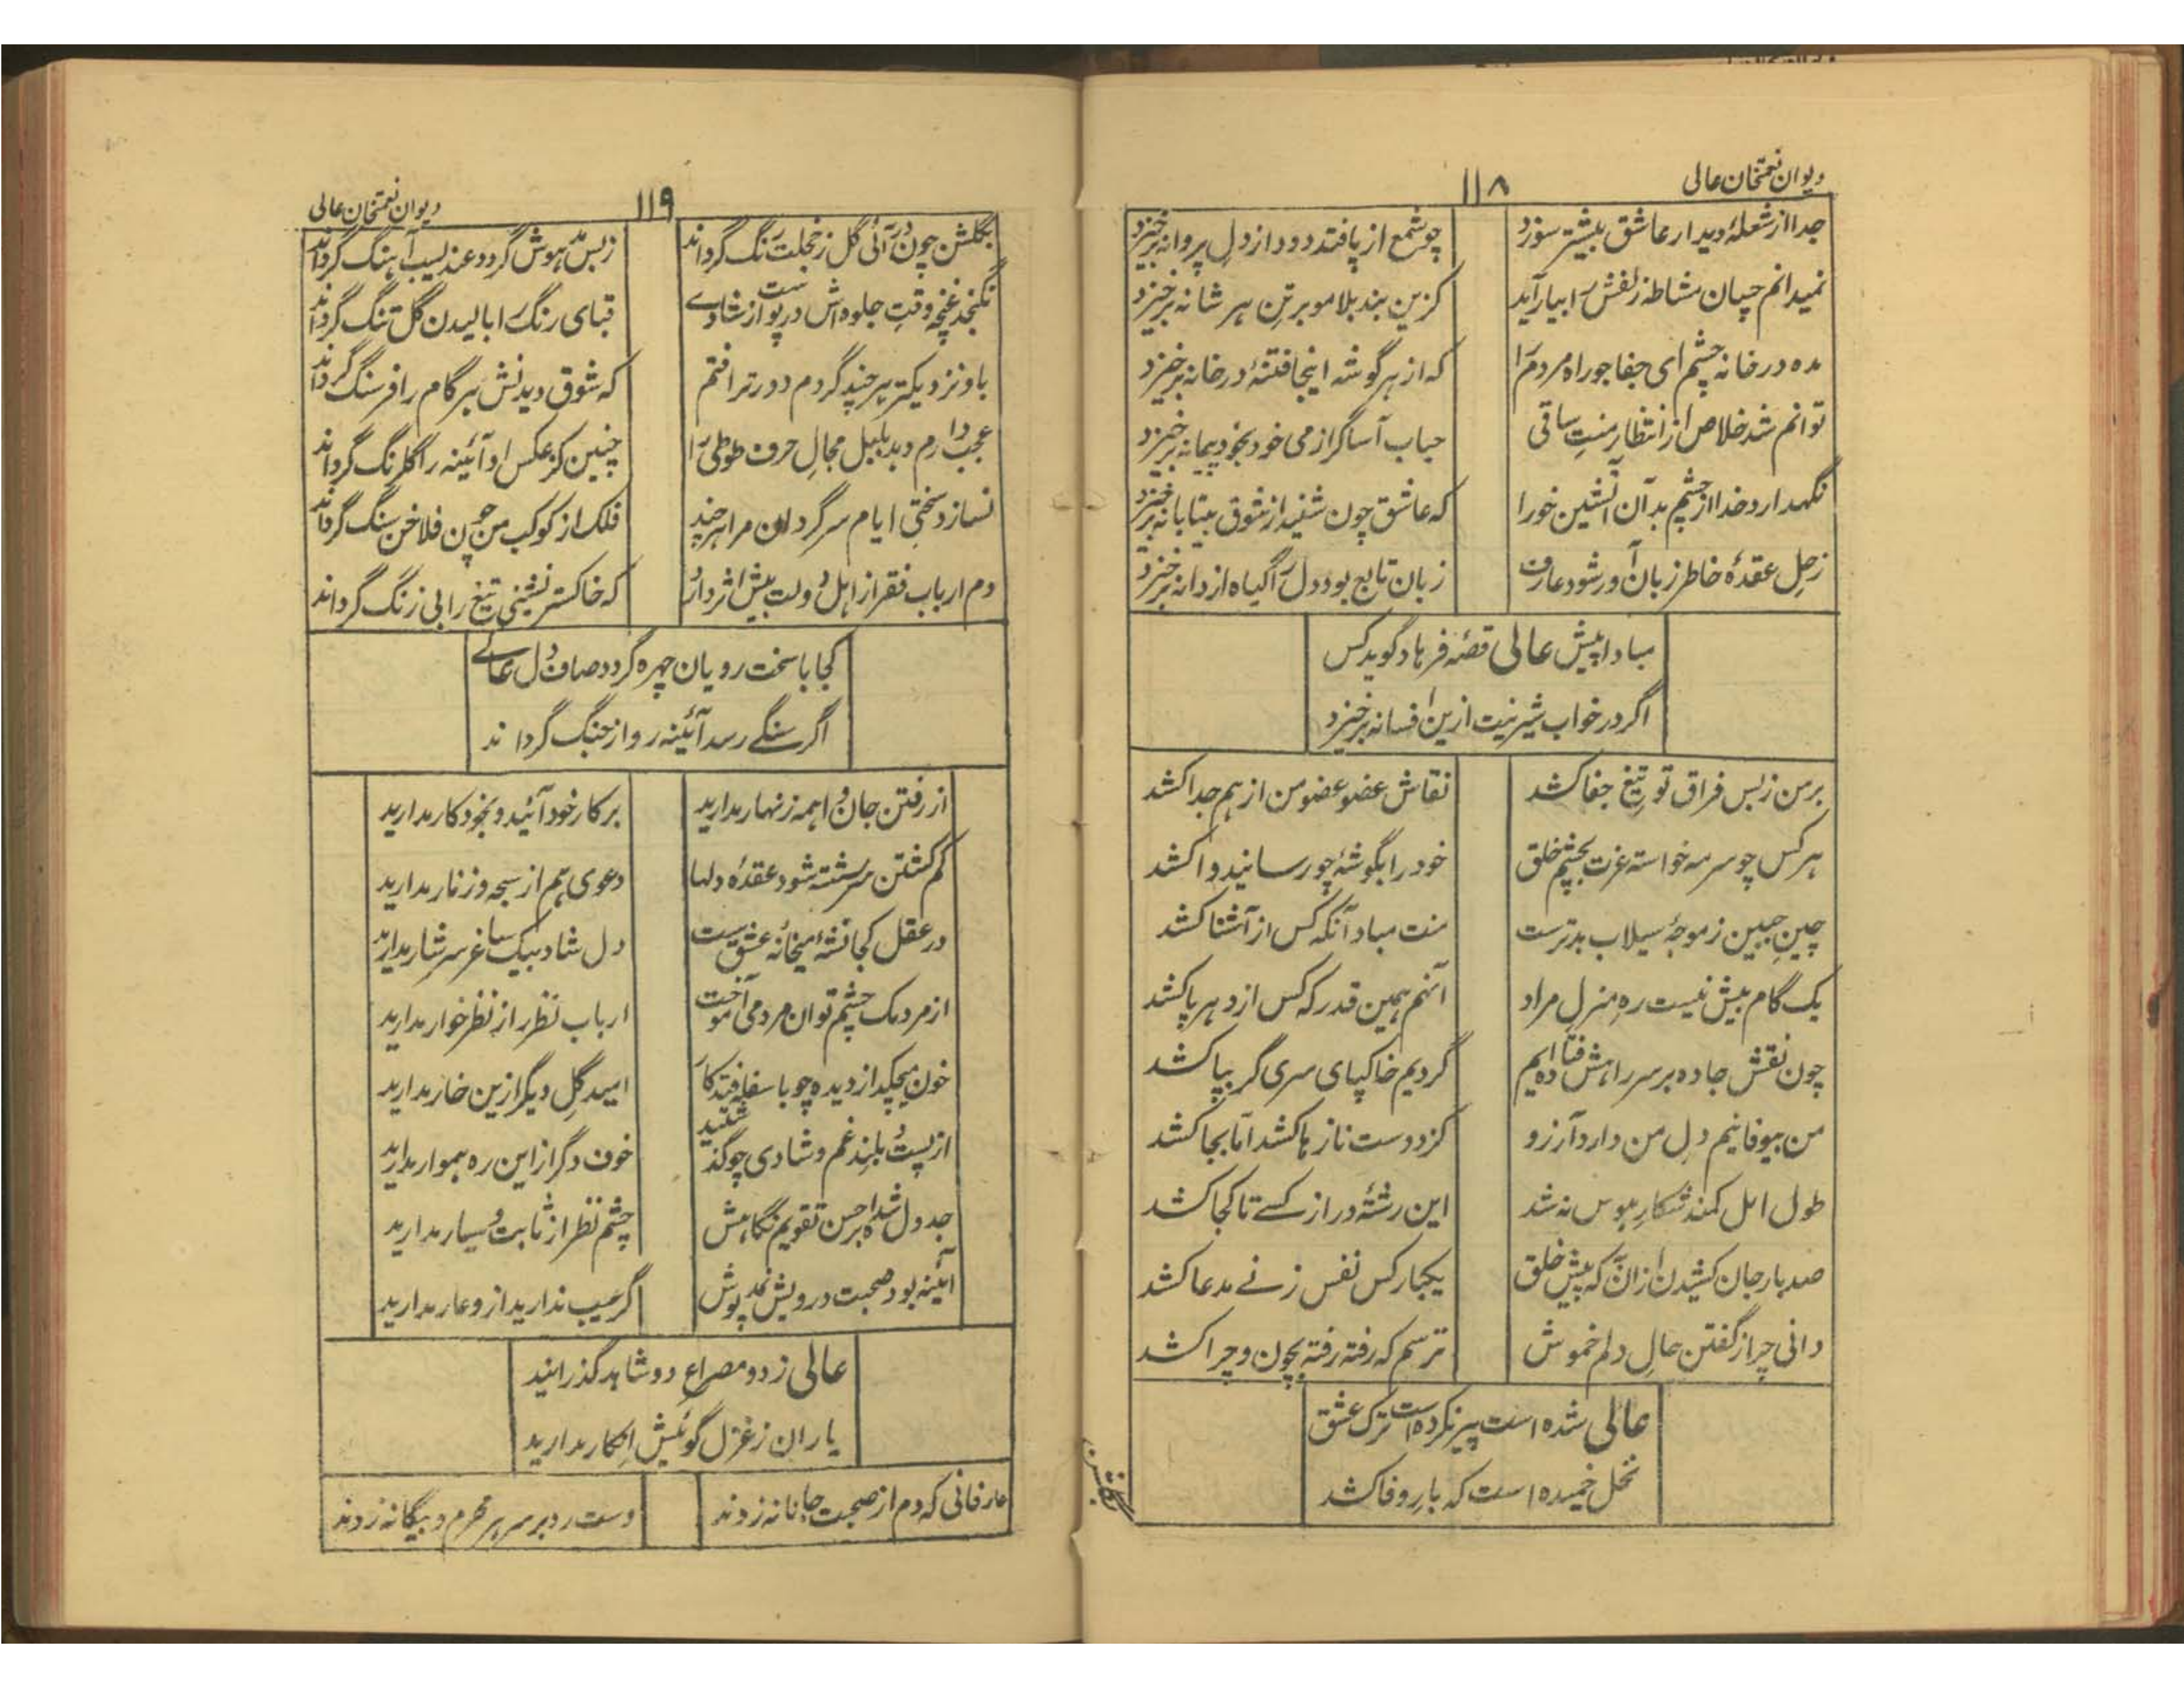 دیوان نعمتخان عالی
۱۱۸
جدا از شعلهٔ دیدار عاشق بیشتر سوزد
چو شمع از پا فتد دود از دل پروانه برخیزد
نمیدانم چسان مشاطه زلفش را بیاراید
کزین بند بلا مو بر تن هر شانه برخیزد
مده در خانه چشم ای جفا جو راه مردم را
که از هر گوشه اینجا فتنهٔ در خانه برخیزد
توانم شد خلاص از انتظار منت ساقی
حباب آسا گر از می خود بخود پیمانه برخیزد
نگهدارد خدا از چشم بد آن آتشین خو را
که عاشق چون شنید از شوق بیتابانه برخیزد
ز حل عقدهٔ خاطر زبان آور شود عارف
زبان تابع بود دل را گیاه از دانه برخیزد
مبادا پیش عالی قصهٔ فرهاد گوید کس
اگر در خواب شیرینت ازین افسانه برخیزد
بر من ز بس فراق تو تیغ جفا کشد
نقاش عضو عضو من از هم جدا کشد
هر کس چو سرمه خواسته عزت بچشم خلق
خود را بگوشهٔ چو رسانید وا کشد
چین جبین ز موجهٔ سیلاب بدترست
منت مباد آنکه کس از آشنا کشد
یک گام بیش نیست ره منزل مراد
آنهم همین قدر که کس از دهر پا کشد
چون نقش جاده بر سر راهش فتاده ایم
گردیم خاکپای سری گر بپا کشد
من بیوفا نیم دل من دارد آرزو
کز دوست نازها کشد اما بجا کشد
طول امل کمند شکار هوس نه شد
این رشتهٔ دراز کسے تا کجا کشد
صد بار جان کشیدن ازان به که پیش خلق
یکبار کس نفس ز نے مدعا کشد
دانی چرا ز گفتن حال دلم خموش
ترسم که رفته رفته بچون و چرا کشد
عالی شده است پیر نکرده است ترک عشق
نخل خمیده است که بار وفا کشد
دیوان نعمتخان عالی
۱۱۹
بگلشن چون در آئی گل ز خجلت رنگ گرداند
ز بس مدهوش گردد عندلیب آهنگ گرداند
نگنجد غنچه وقت جلوه اش در پوست از شادے
قبای رنگ را بالیدن گل تنگ گرداند
باو نزدیکتر هر چند گردم دورتر افتم
که شوق دیدنش هر گام را فرسنگ گرداند
عجب دارم دهد بلبل مجال حرف طوطی را
چنین کز عکس او آئینه را گلرنگ گرداند
نسازد سختی ایام سرگردان مرا هر چند
فلک از کوکب من چون فلاخن سنگ گرداند
دم ارباب فقر از اهل دولت بیش اثر دارد
که خاکستر نشینی تیغ را بی زنگ گرداند
کجا با سخت رویان چهره گردد صاف دل عالے
اگر سنگے رسد آئینه رو از جنگ گرداند
از رفتن جان واهمه زنهار مدارید
بر کار خود آئید و بخود کار مدارید
گم گشتن سررشته شود عقدهٔ دلها
دعوی بهم از سبحه و زنار مدارید
در عقل کجا نشهٔ میخانهٔ عشق ست
دل شاد بیک ساغر سرشار مدارید
از مردمک چشم توان مردمی آموخت
ارباب نظر را ز نظر خوار مدارید
خون میچکد از دیده چو با سفله فتد کار
امید گل دیگر ازین خار مدارید
از پست و بلند غم و شادی چو گذشتید
خوف دگر از این ره هموار مدارید
جدول شده بر احسن تقویم نگاهش
چشم نظر از ثابت و سیار مدارید
آئینه بود صحبت درویش نمد پوش
گر عیب ندارید ازو عار مدارید
عالی ز دو مصراع دو شاهد گذرانید
یاران ز غزل گوئیش انکار مدارید
عارفانی که دم از صحبت جانانه زدند
دست رد بر سر هر محرم و بیگانه زدند